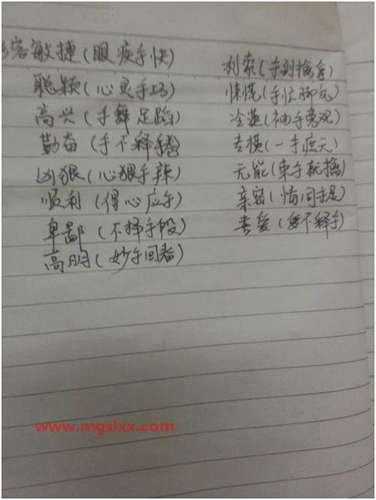 容敏捷(眼疾手快)
聪颖(心灵手巧)
高兴(手舞足蹈)
勤奋(手不释卷)
凶狠(心狠手辣)
顺利(得心应手)
卑鄙(不择手段)
高明(妙手回春)
利索(手到擒来)
慌慌(手忙脚乱)
冷淡(袖手旁观)
专横(一手遮天)
无能(束手就擒)
亲密(情同手足)
喜爱(爱不释手)
www.mgslxx.com